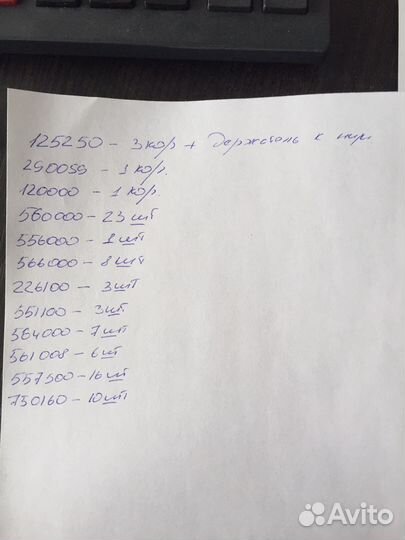 125250 - 3 кор + держатель к ним
290059 - 1 кор.
120000 - 1 кор.
560000 - 23 шт
556000 - 1 шт
566000 - 8 шт
226100 - 3 шт
551100 - 3 шт
564000 - 7 шт
561008 - 6 шт
557500 - 16 шт
750160 - 10 шт
Avito